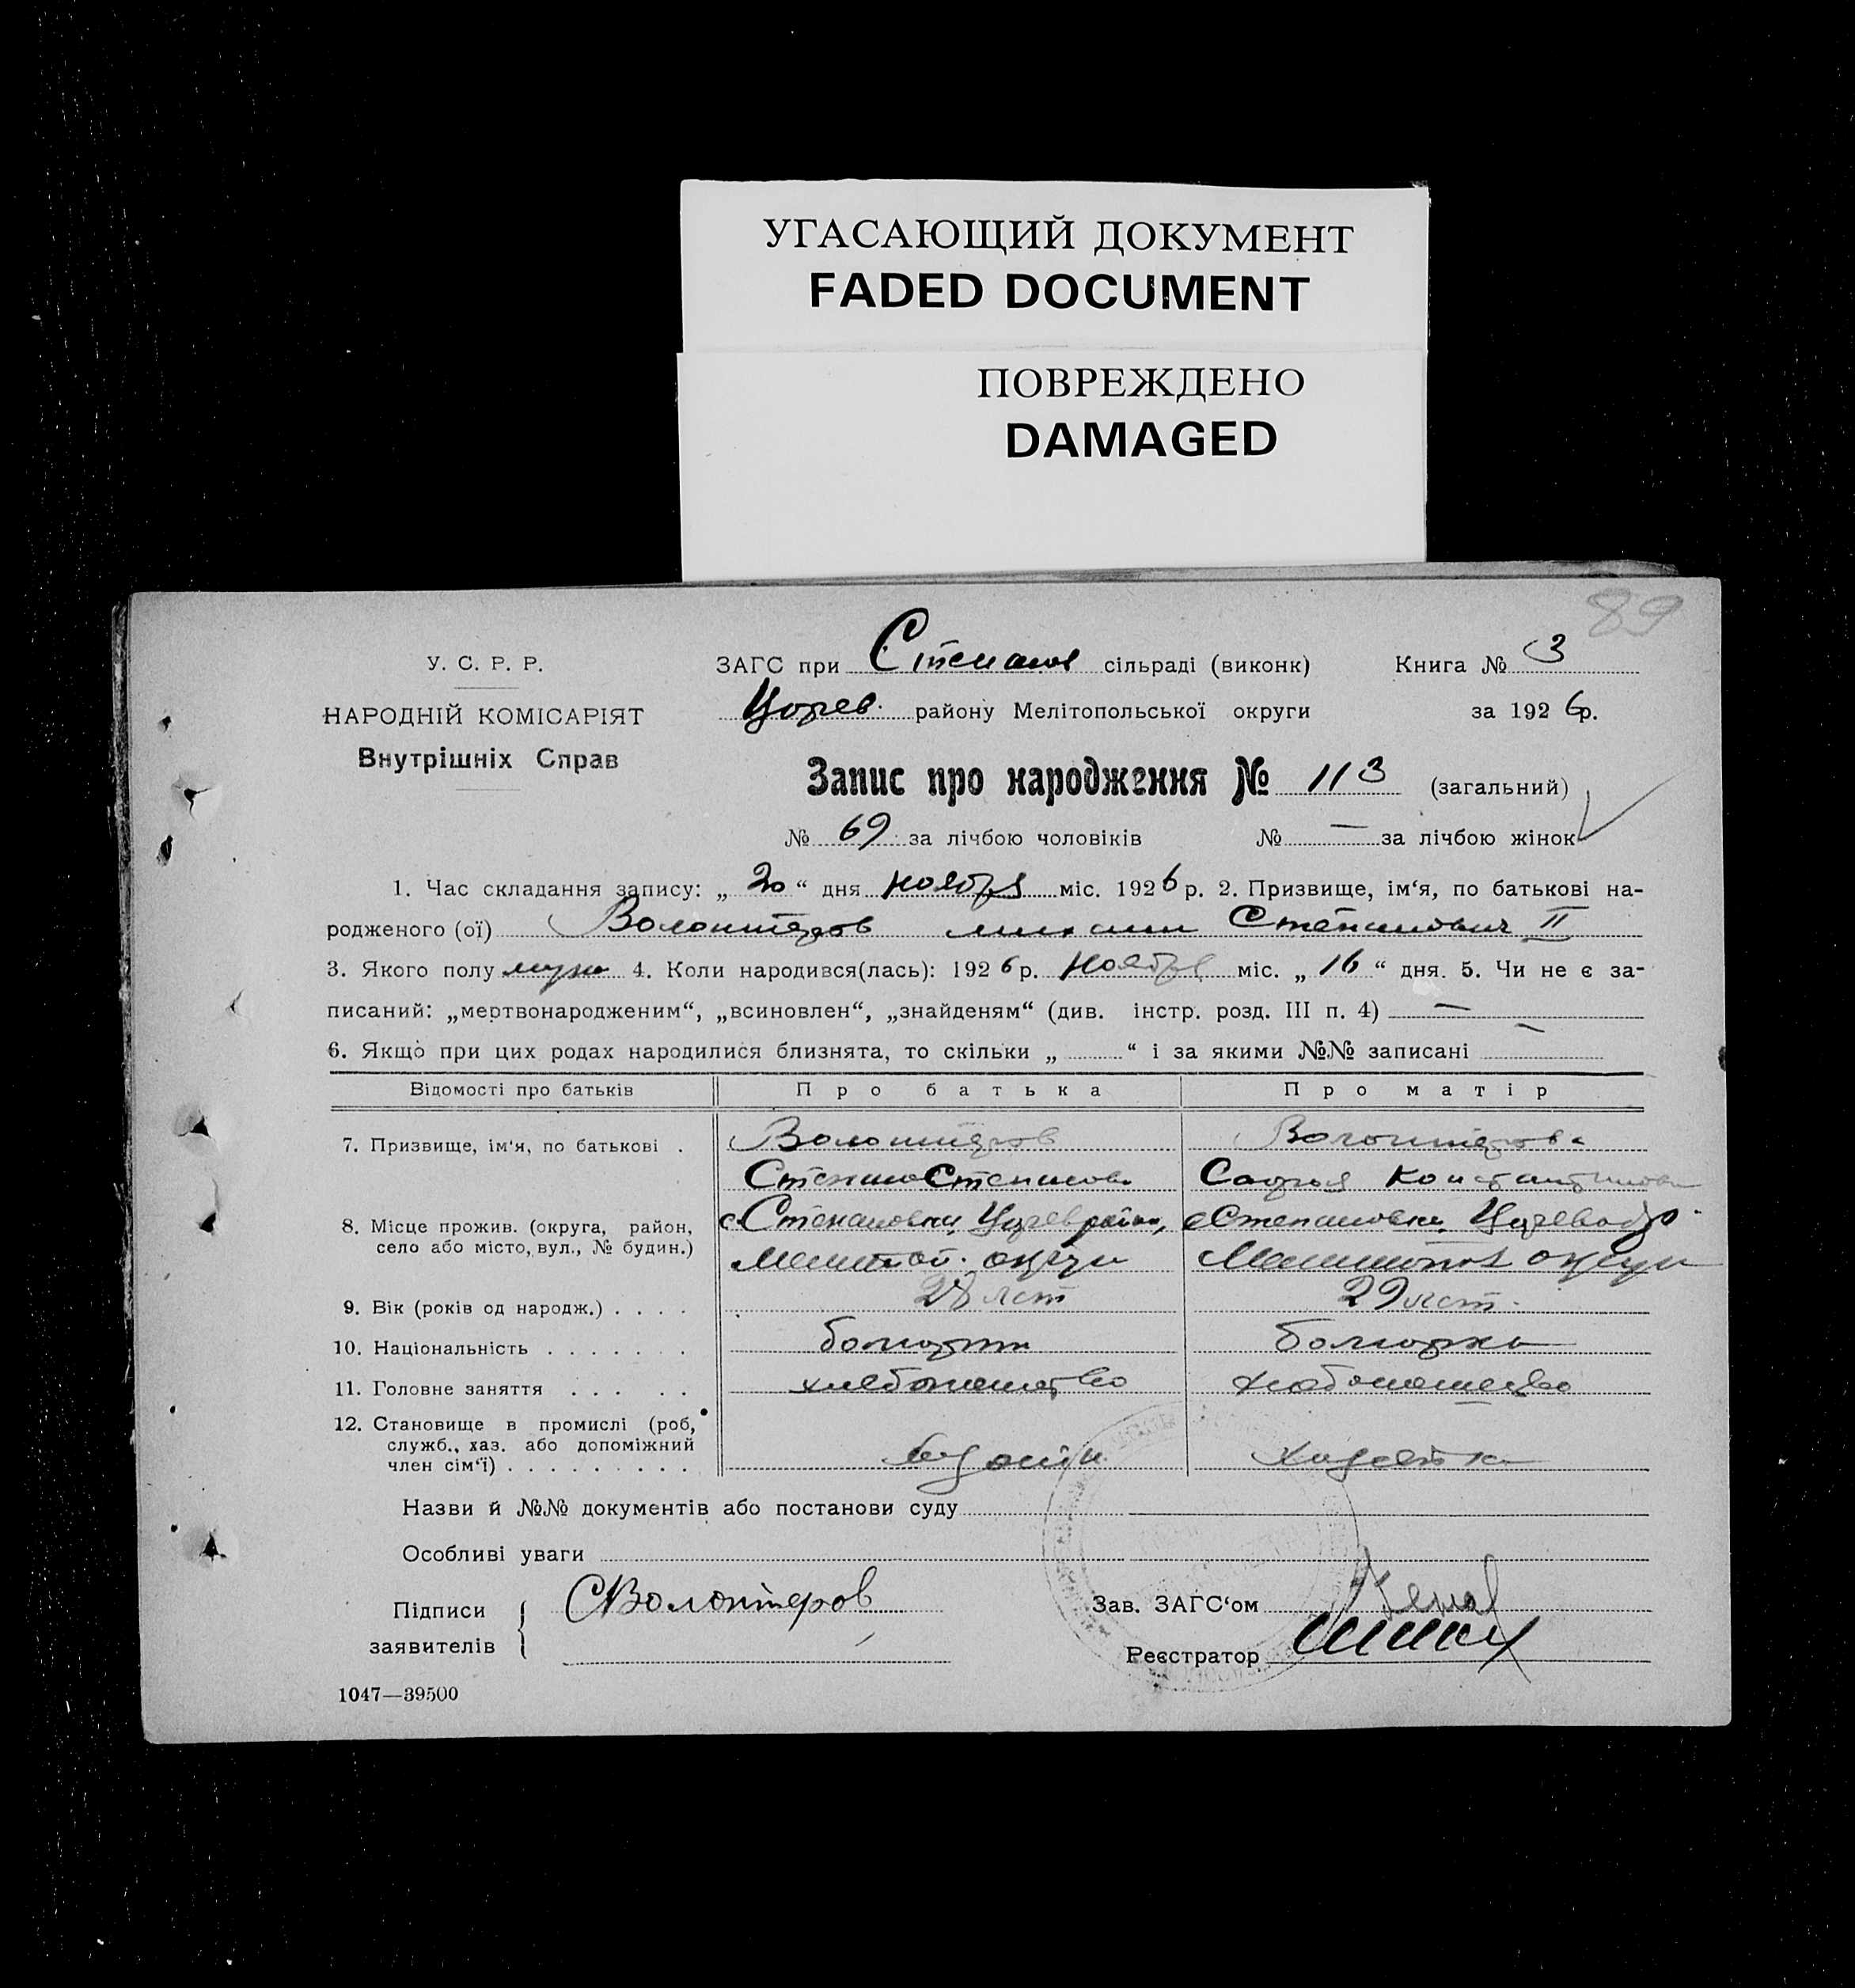 УГАСАЮЩИЙ ДОКУМЕНТ
FADED DOCUMENT
ПОВРЕЖДЕНО
DAMAGED
89
У. С. Р. Р.
НАРОДНІЙ КОМІСАРІЯТ
Внутрішніх Справ
ЗАГС при Степанов сільраді (виконк) Книга № 3
Царев. району Мелітопольської округи за 1926р.
Запис про народження № 113 (загальний)
№ 69 за лічбою чоловіків № — за лічбою жінок
1. Час складання запису: „ 20 “ дня ноября міс. 1926 р. 2. Призвище, ім‘я, по батькові на-
родженого (ої) Волонтеров михаил Степанович II
3. Якого полу муж 4. Коли народився(лась): 1926 р. Ноября міс. „ 16 “ дня. 5. Чи не є за-
писаний: „мертвонародженим“, „всиновлен“, „знайденям“ (див. інстр. розд. III п. 4) —
6. Якщо при цих родах народилися близнята, то скільки „ “ і за якими №№ записані —
Відомості про батьків Про батька Про матір
7. Призвище, ім‘я, по батькові . Волонтеров Волонтерова
Степан Степанов Софья Константинова
8. Місце прожив. (округа, район, с Степановка, Царев район, с Степановка Царева
село або місто, вул., № будин.) Мелитоп. округи Мелитопол округи
9. Вік (років од народж.) . . . . 28 лет 29 лет.
10. Національність . . . . . . . болгарин болгарка
11. Головне заняття . . . . . хлебопашество хлебопашество
12. Становище в промислі (роб,
служб., хаз. або допоміжний
член сім‘ї) . . . . . . . . . хозяйка
Назви й №№ документів або постанови суду
Особливі уваги
Підписи СВолонтеров Зав. ЗАГС‘ом
заявителів Реєстратор
1047—39500